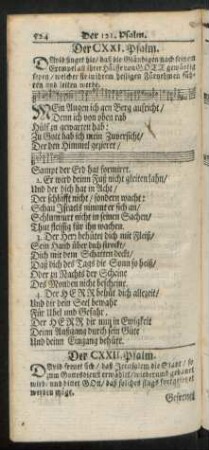 524 Der 121. Psalm.
Der CXXI. Psalm.
David singet hie/ daß die Gläubigen nach seinem
Exempel all ihrer Hülffe von GOTT gewärtig
seyen/ welcher sie in ihrem heiligen Fürnehmen
und leiten werde.
MEin Augen ich gen Berg aufricht/
Denn ich von oben rab
Hülf zu gewarten hab:
In Gott hab ich mein Zuversicht/
Der den Himmel gezieret/
Sampt der Erd hat formiret.
2. Er wird deinn Fuß nicht gleiten lahn/
Und der dich hat in Acht/
Der schläfft nicht/ sondern wacht:
Schau Israels nimmt er sich an/
Schlummert nicht in seinen Sachen/
Thut fleissig für ihn wachen.
3. Der Herr behütet dich mit Fleiß/
Sein Hand über dich streckt/
Dich mit dem Schatten deckt/
Daß dich des Tags die Sonn so heiß/
Oder zu Nachts der Scheine
Des Monden nicht bescheine.
4. Der HERR behüt dich allezeit/
Und dir dein Seel bewahr
Für Übel und Gefahr.
Der HERR dir nun in Ewigkeit
Deinn Außgang durch sein Güte
Und deinn Eingang behüte.
Der CXXII. Psalm.
David freuet sich/ daß Jerusalem die Stadt/
zum Gottesdienst erwählt/ wiederumb gebauet
wird: und bittet GOtt/ daß solches
werden möge.